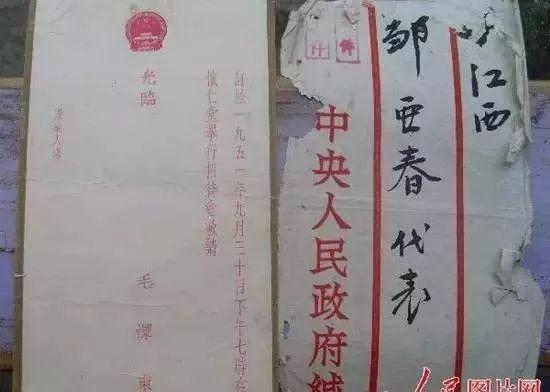 訂於一九五一年九月三十日下午七時在
懷仁堂舉行招待會敬請
光臨
毛澤東
江西
邹亜春代表
中央人民政府緘
件
人民图片网